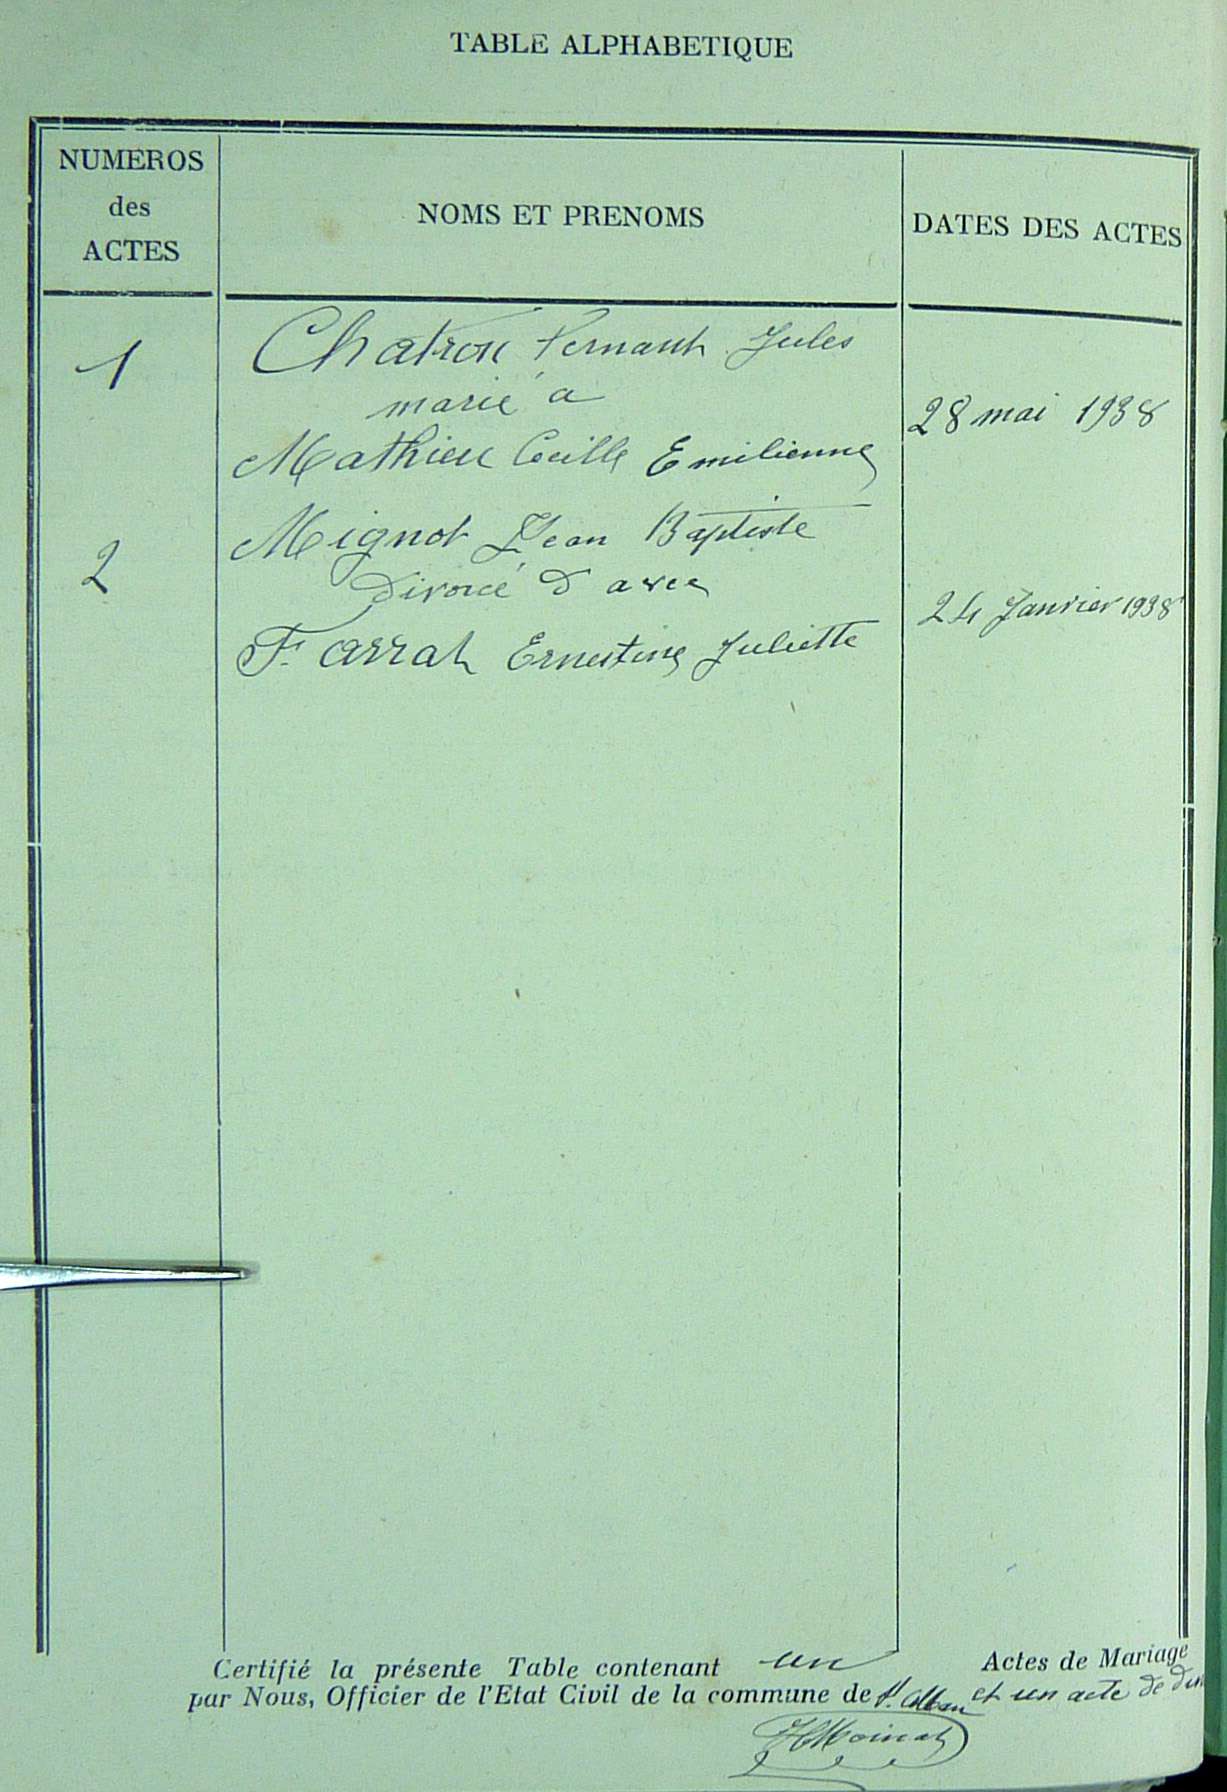 TABLE ALPHABETIQUE
NUMEROS
des
ACTES
NOMS ET PRENOMS
DATES DES ACTES
1
Chatron Fernand Jules
marié a
28 mai 1938
Mathieu Cécille Emilienne
2
Mignot Jean Baptiste
divorcé d avec
24 Janvier 1938
Farrat Ernestine Juliette
Certifié la présente Table contenant un Actes de Mariage
par Nous, Officier de l'Etat Civil de la commune de St. Alban et un acte de